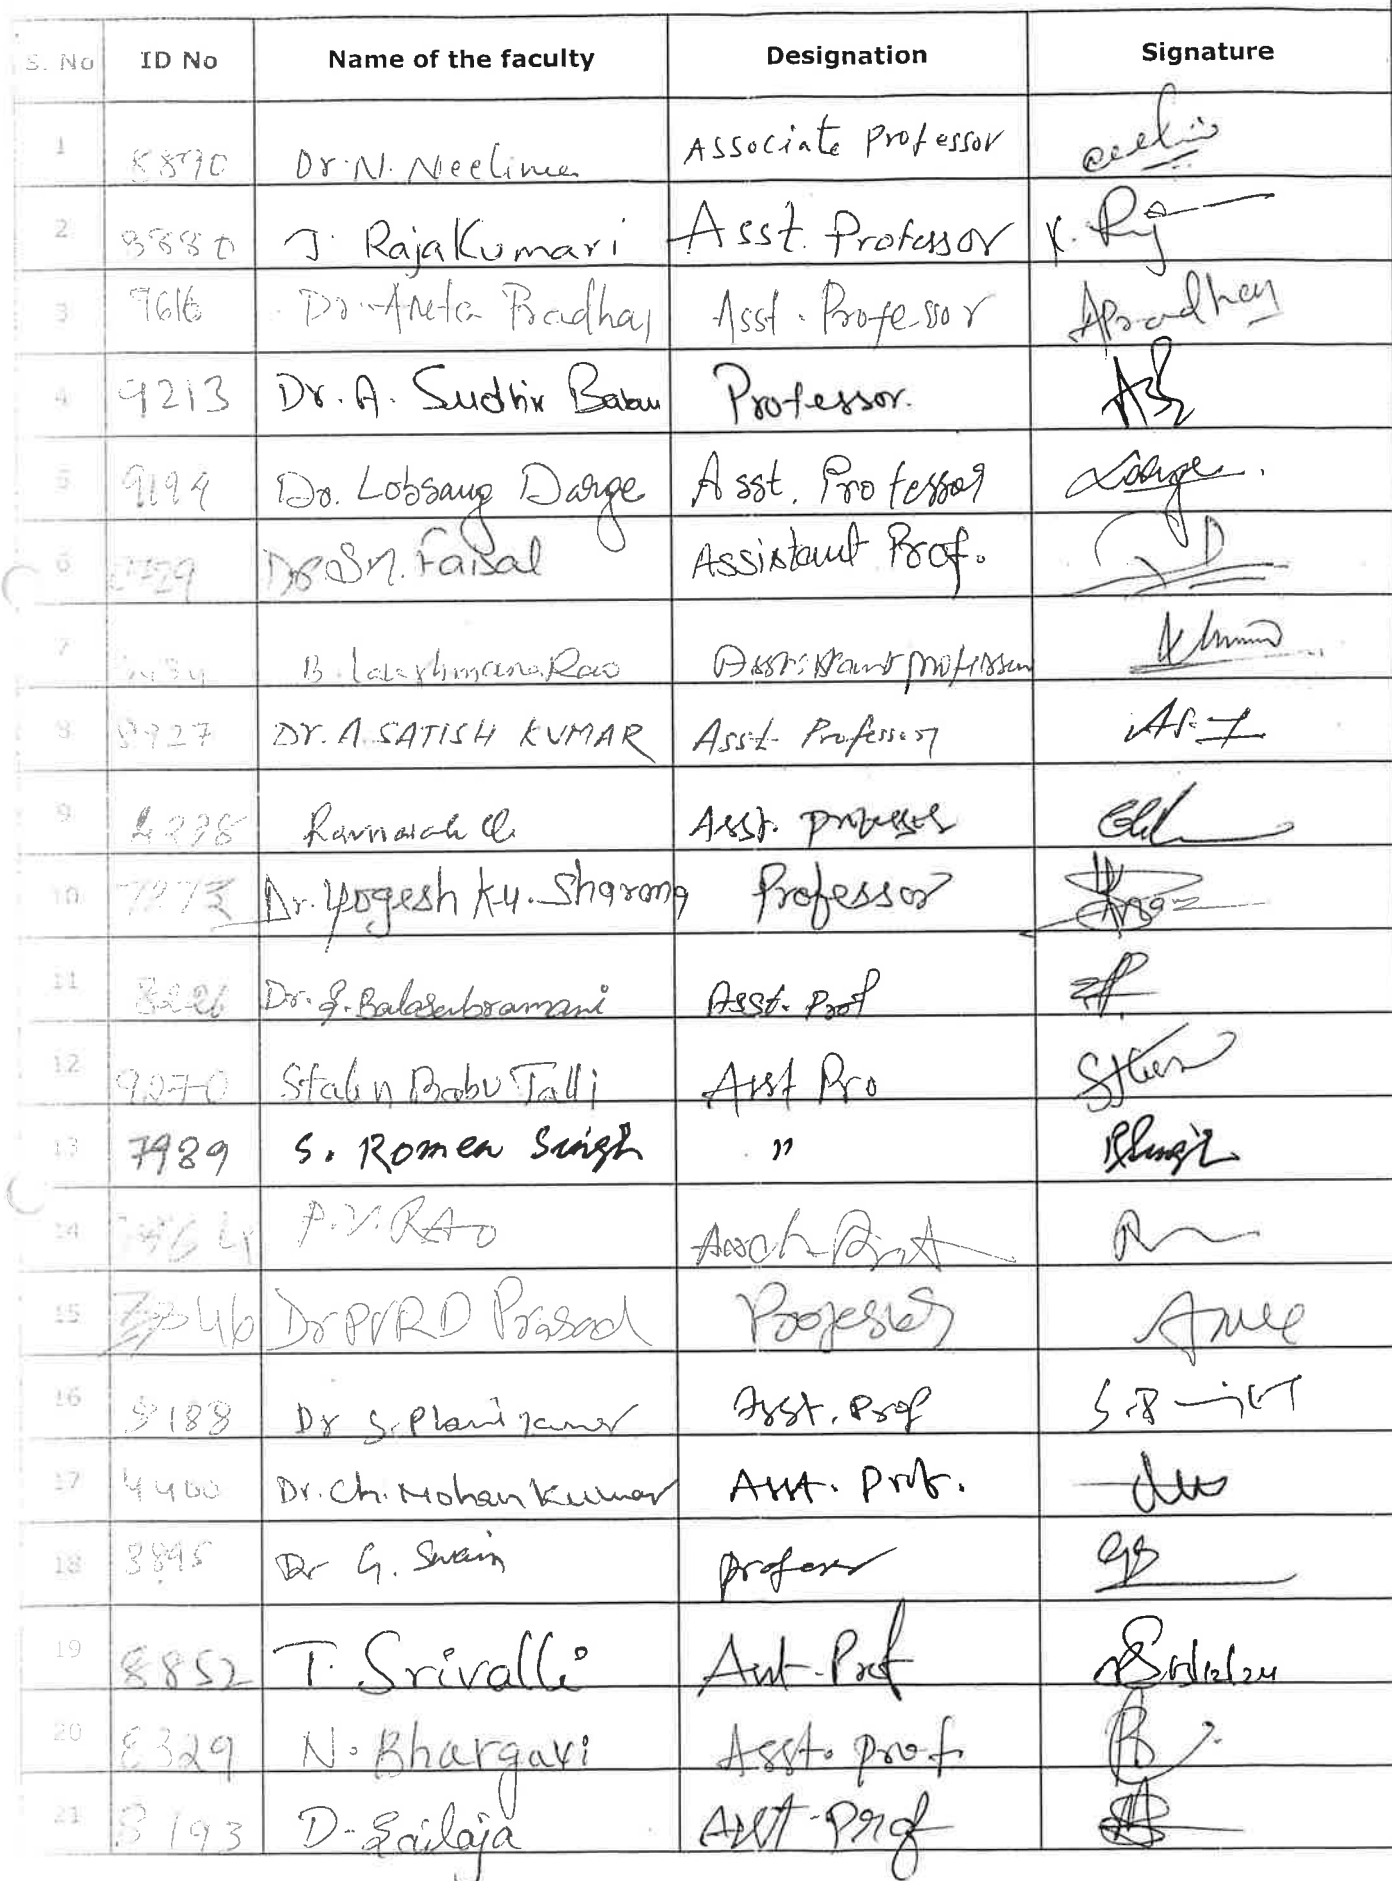 S. No ID No Name of the faculty Designation Signature
1 8890 Dr. N. Neelima Associate Professor
2 8880 J. RajaKumari Asst. Professor K. Raj
3 9616 Dr. Aneta Pradhan Asst. Professor APradhan
4 9213 Dr. A. Sudhir Babu Professor.
5 9194 Dr. Lobsang Darge Asst. Professor Darge.
6 Dr. S. M. Faisal Assistant Prof.
7 B. Lakshmana Rao Assistant professor
8 8927 Dr. A. SATISH KUMAR Asst. Professor
9 Ramaiah Ch. Asst. professor
10 7273 Dr. Yogesh Ku. Sharma Professor
11 Dr. G. Balasubramani Asst. Prof
12 9270 Stalin Babu Talli Asst Pro
13 7989 S. Romen Singh " RSingh
14 P.V. RAO
15 Dr PVRD Prasad Professor
16 8188 Dr S. Asst. Prof
17 4400 Dr. Ch. Mohan Kumar Asst. Prof.
18 3895 Dr G. Swain professor
19 8852 T. Srivalli Asst. Prof
20 8329 N. Bhargavi Asst. prof.
21 8193 D. Sailaja Asst. Prof